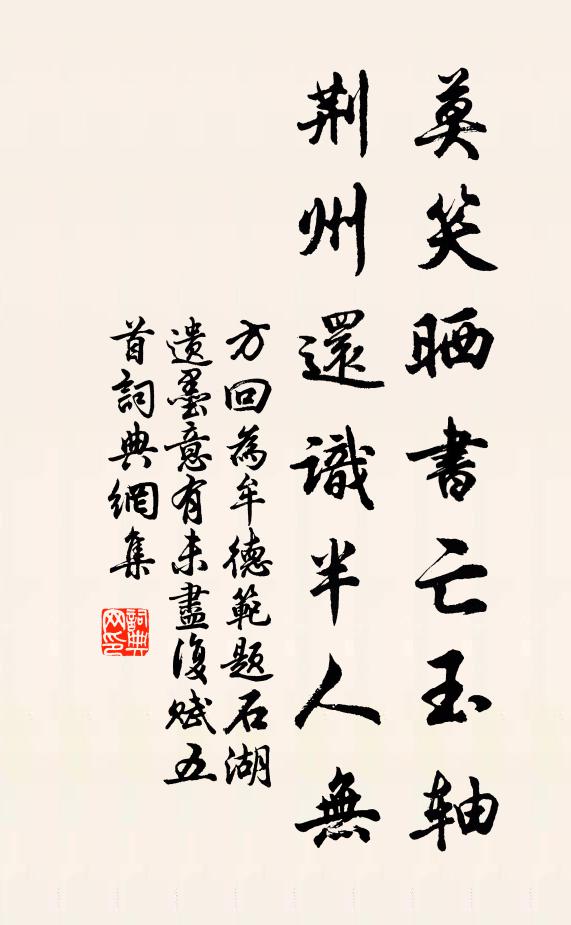 莫笑晒書亡玉軸
荆州還識半人無
方回為牟德範題石湖
遺墨意有未盡復賦五
首詞典網集
詞典网印